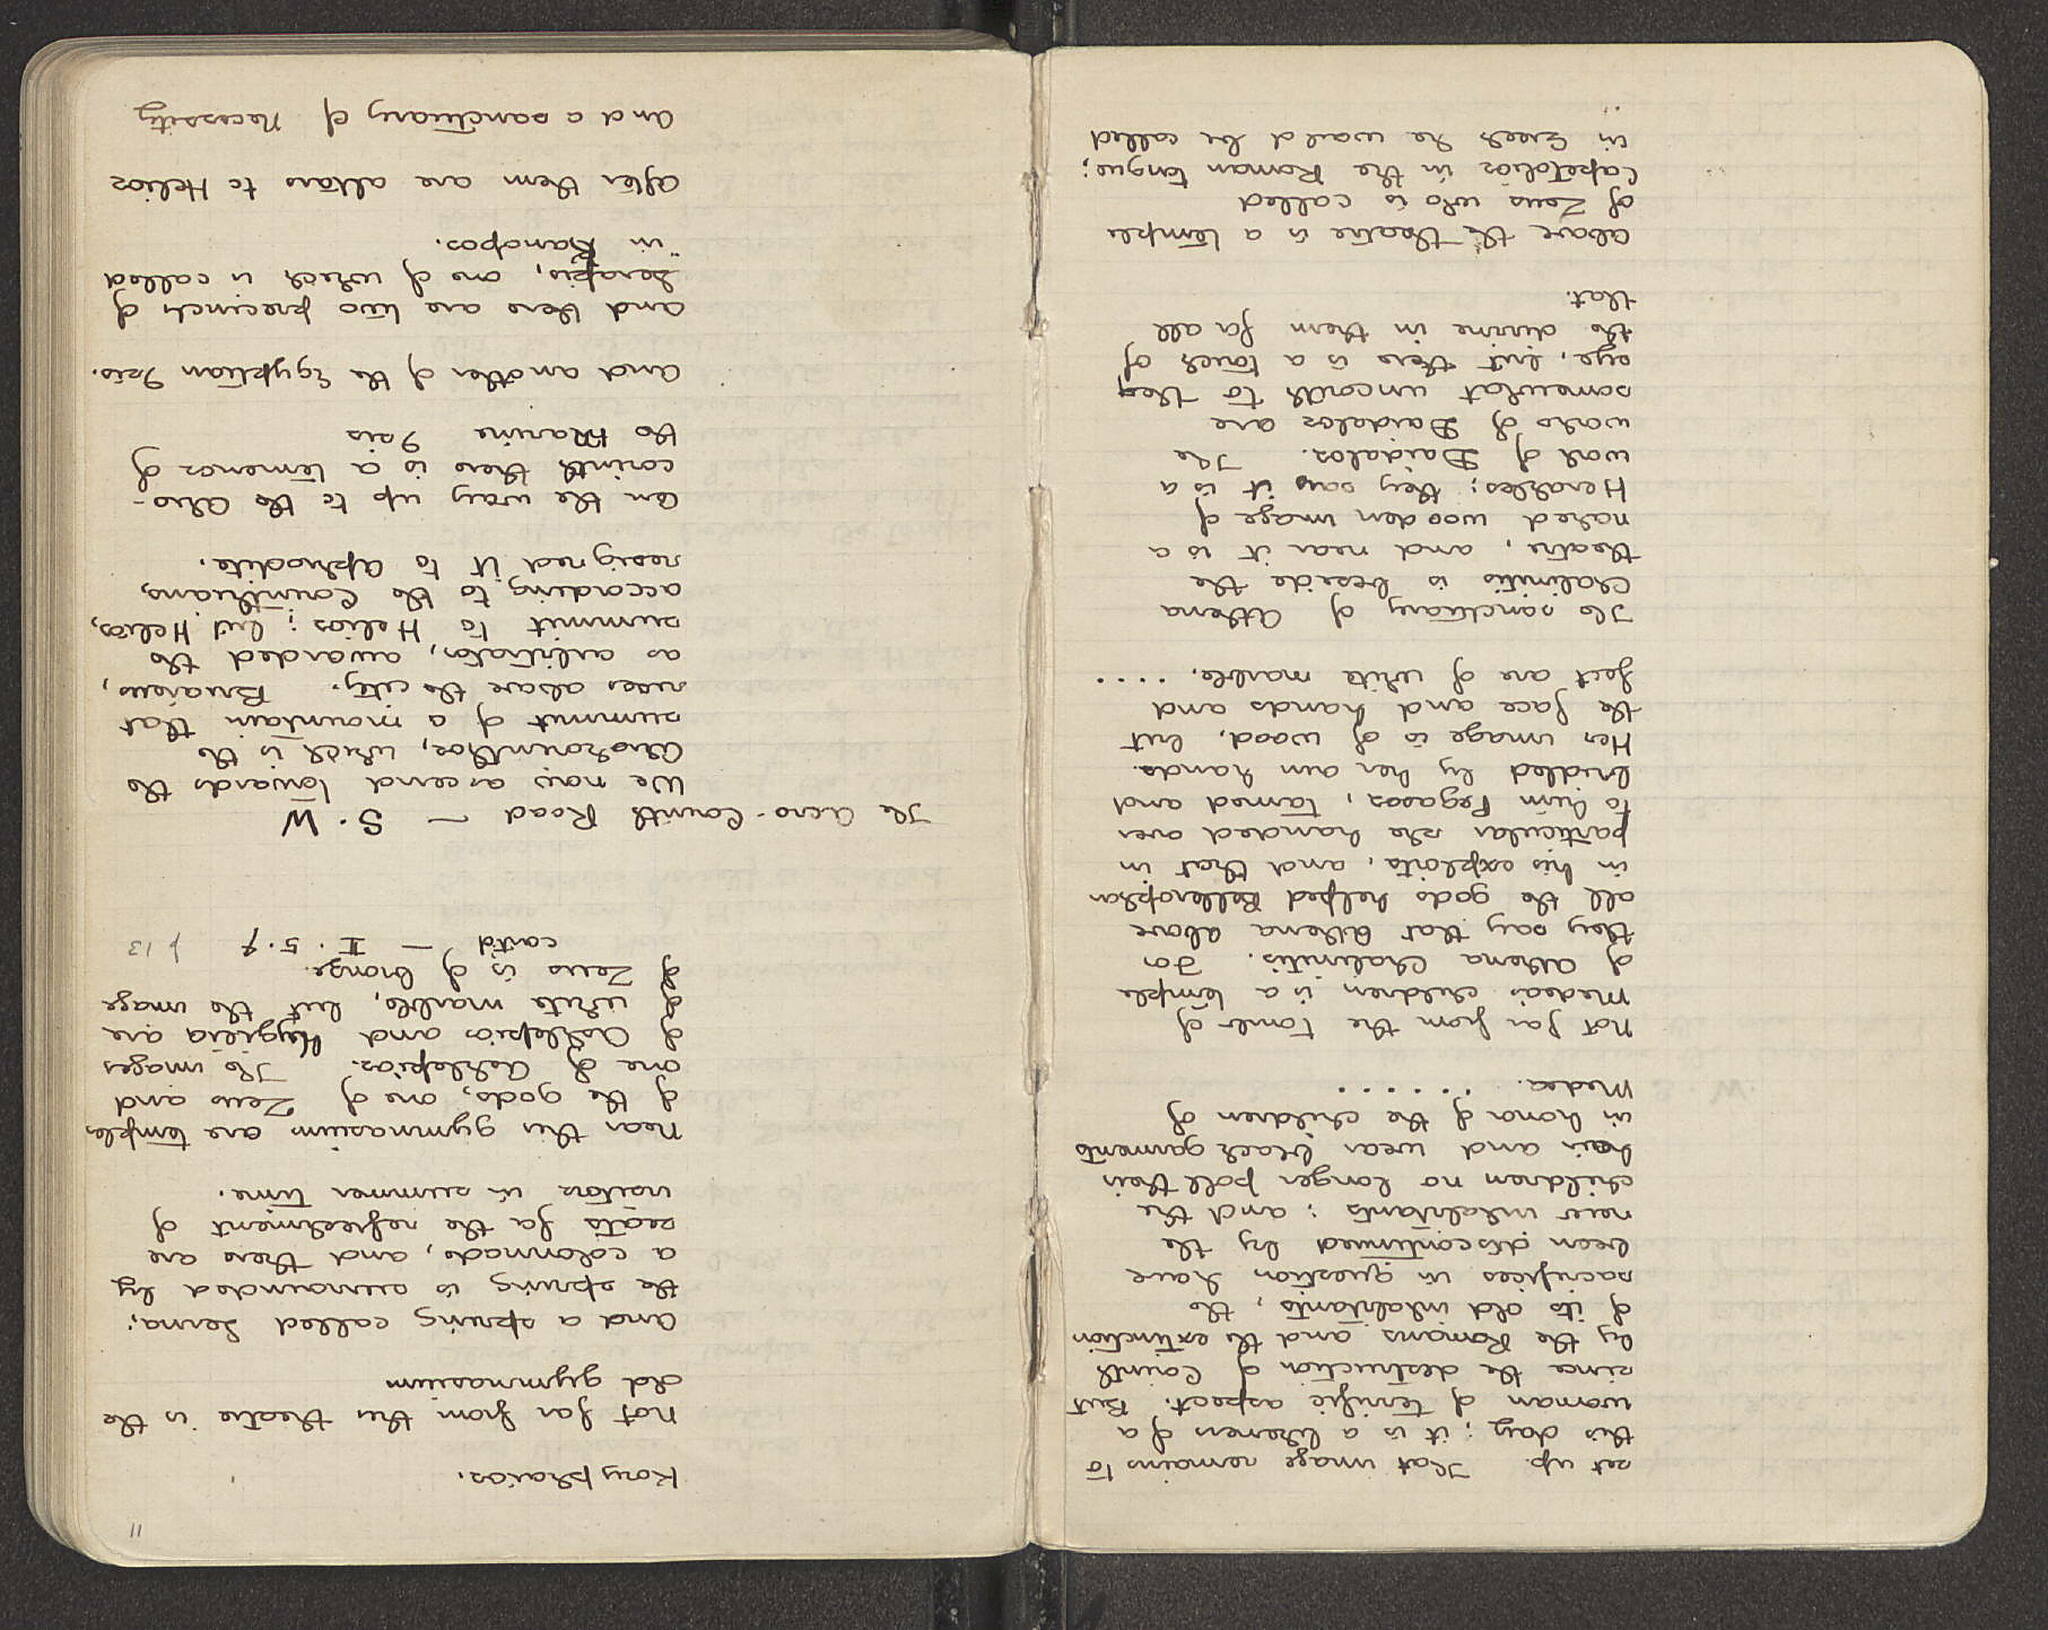 set up. That image remains to
this day; it is a likeness of a
woman of terrific aspect. But
since the destruction of Corinth
by the Romans and the extinction
of its old inhabitants, the
sacrifices in question have
been discontinued by the
new inhabitants; and the
children no longer poll their
hair and wear black garments
in honor of the children of
Medea. . . . . .
Not far from the tomb of
Medea's children is a temple
of Athena Chalinitis. For
they say that Athena above
all the gods helped Bellerophon
in his exploits, and that in
particular she handed over
to him Pegasos, tamed and
bridled by her own hands.
Her image is of wood, but
the face and hands and
feet are of white marble. . . . .
The sanctuary of Athena
Chalinitis is beside the
theatre, and near it is a
naked wooden image of
Herakles; they say it is a
work of Daidalos. The
works of Daidalos are
somewhat uncouth to the
eye, but there is a touch of
the divine in them for all
that.
Above the theatre is a temple
of Zeus who is called
Capetolios in the Roman tongue;
in Greek he would be called
11
Koryphaios.
Not far from this theatre is the
old gymnasium
And a spring called Lerna;
the spring is surrounded by
a colonnade, and there are
seats for the refreshment of
visitors in summer time.
Near this gymnasium are temples
of the gods, one of Zeus and
one of Asklepios. The images
of Asklepios and Hygieia are
of white marble, but the image
of Zeus is of bronze.
cont'd — II. 5. f p 13
The Acro-Corinth Road — S. W
We now ascend towards the
Akrokorinthos, which is the
summit of a mountain that
rises above the city. Briareus,
as arbitrator, awarded the
summit to Helios; but Helios,
according to the Corinthians,
resigned it to Aphrodite.
On the way up to the Acro-
corinth there is a temenos of
the Marine Isis
And another of the Egyptian Isis.
And there are two precincts of
Serapis, one of which is called
"in Kanopos.
After them are altars to Helios
And a sanctuary of Necessity